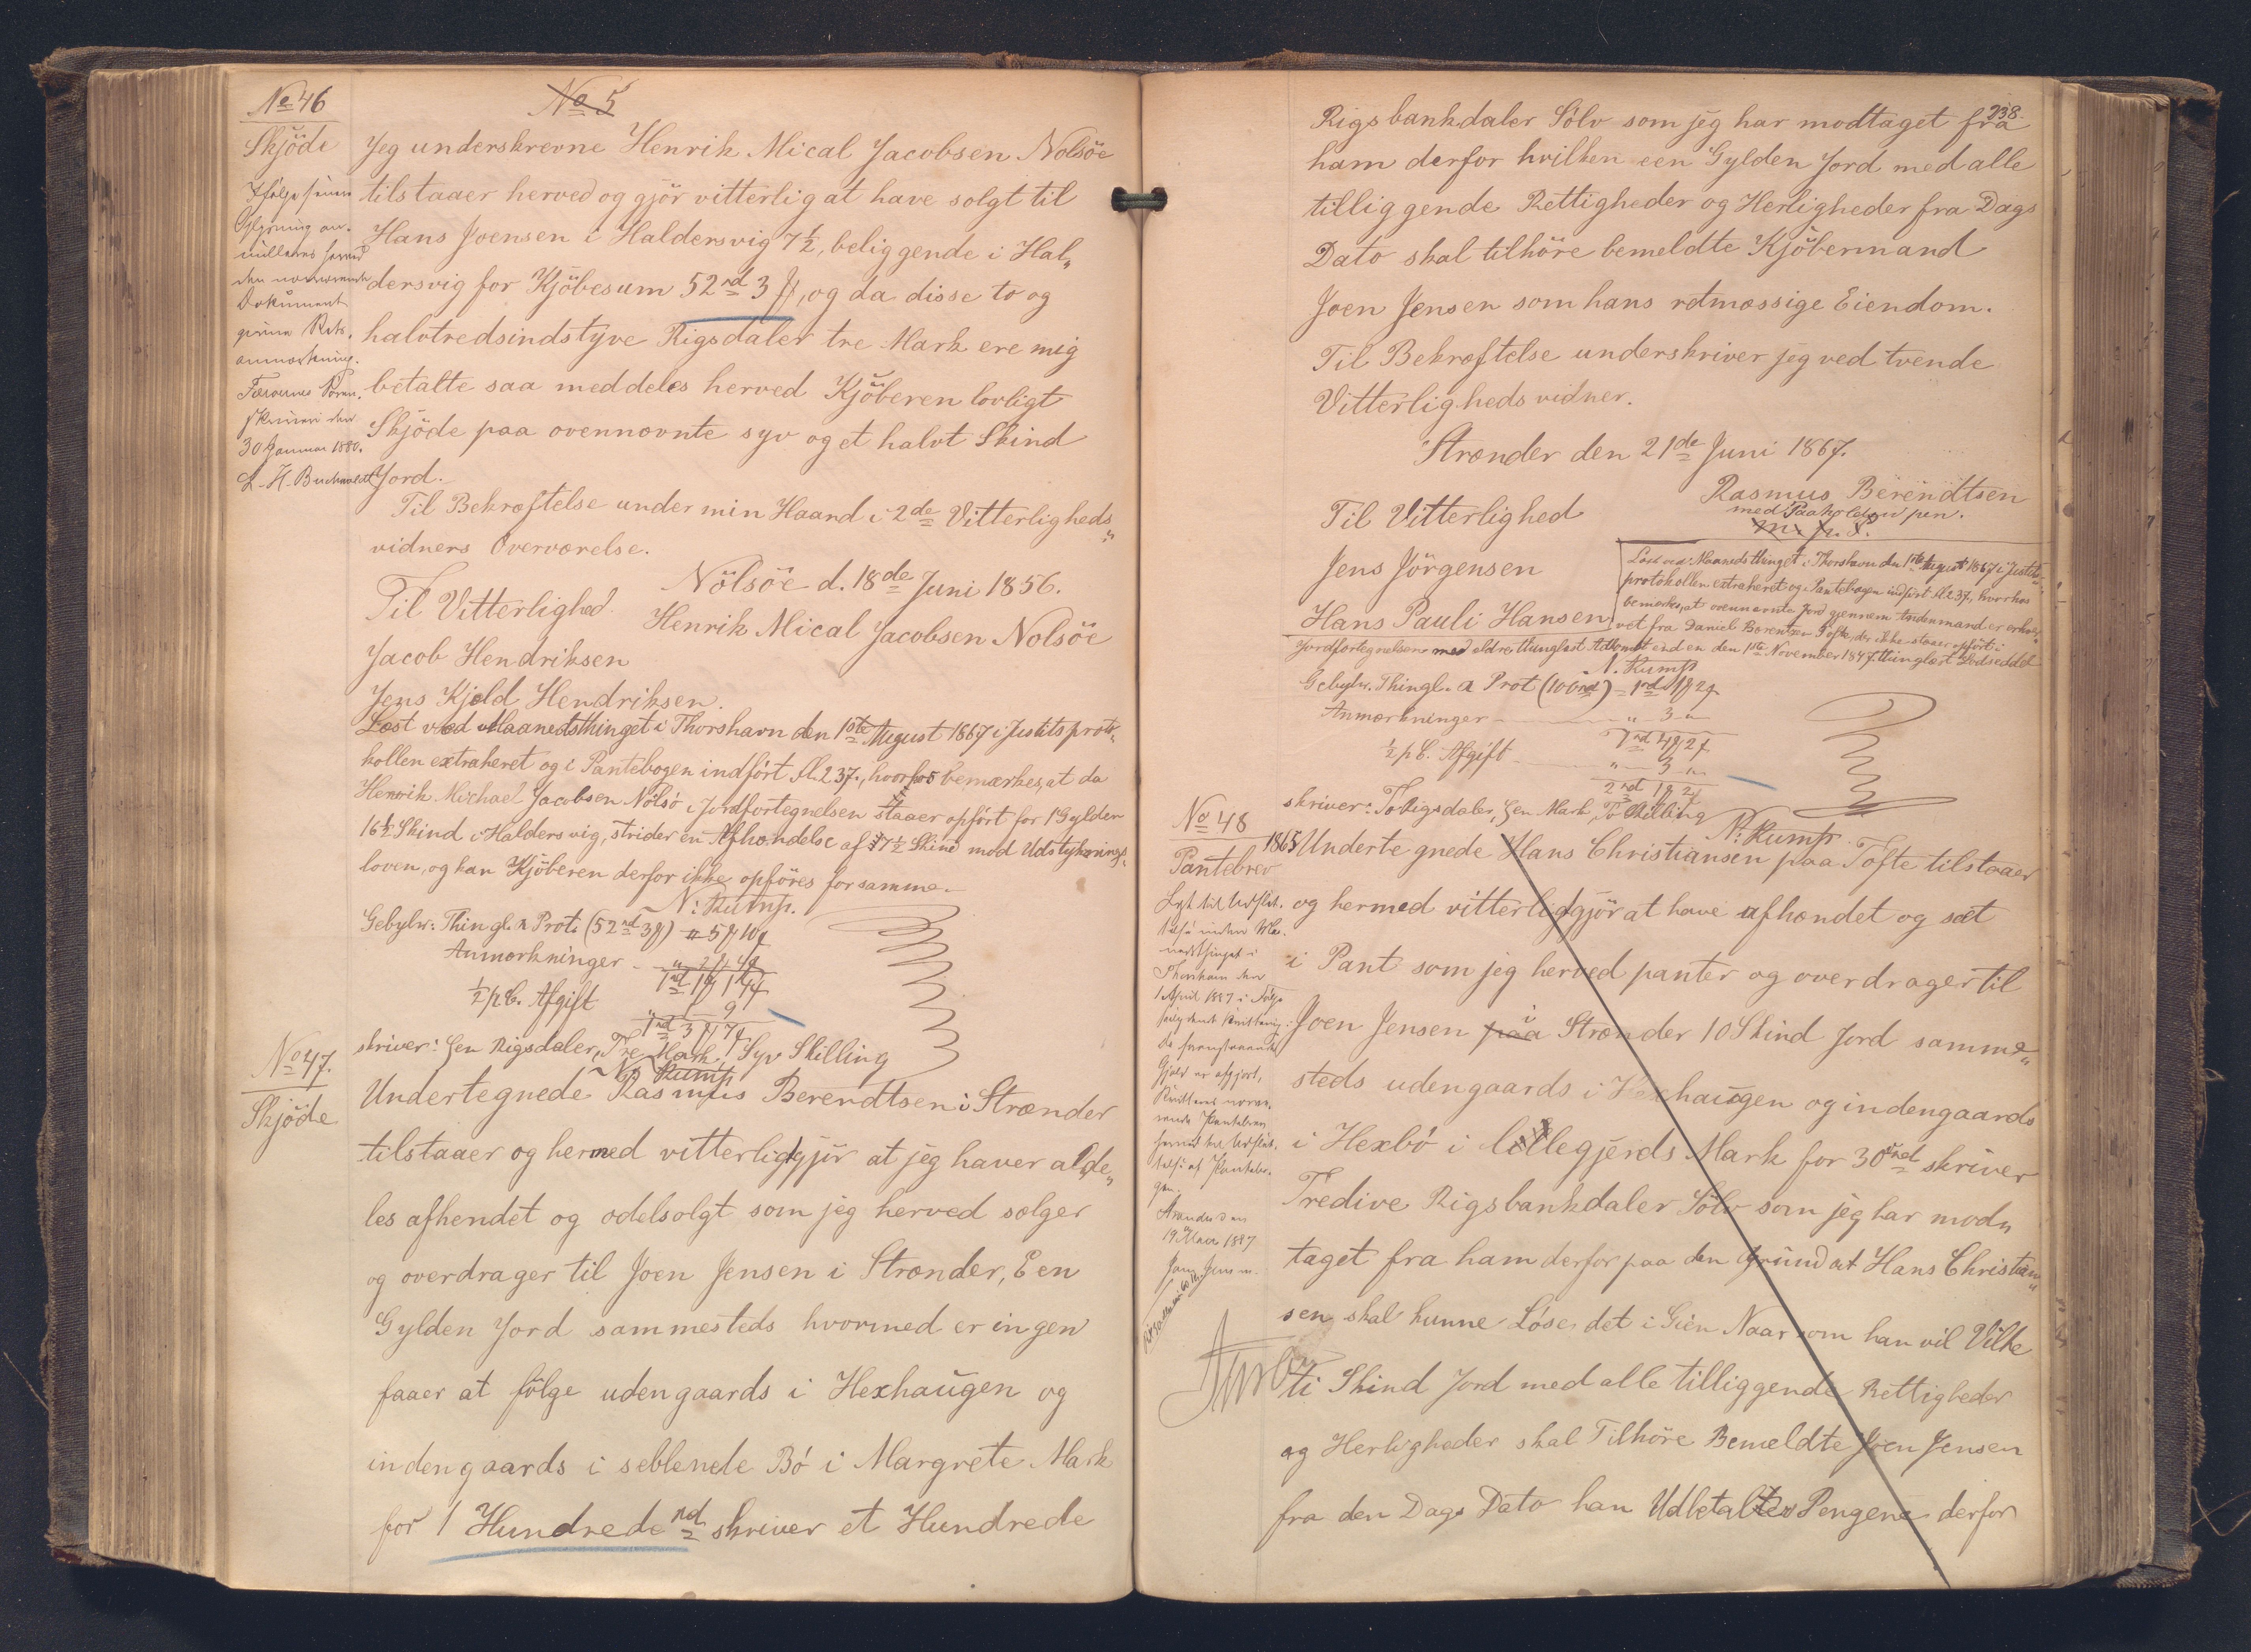 No 46
No 5
Skjöde
Jeg underskrevne Henrik Mical Jacobsen Nolsöe
tilstaaer herved og gjör vitterlig at have solgt til
Hans Joensen i Haldersvig 7½, beliggende i Hal„
dersvig for Kjöbesum 52 rd 3 ꝟ, og da disse to og
halvtredsindstyve Rigsdaler tre Mark ere mig
betalte saa meddeles herved Kjöberen lovligt
Skjöde paa ovennævnte syv og et halvt Skind
Jord.
Til Bekræftelse under min Haand i 2de Vitterligheds„
vidners Overværelse.
Nölsöe d. 18de Juni 1856.
Til Vitterlighed. Henrik Mical Jacobsen Nolsöe
Jacob Hendriksen
Jens Kjeld Hendriksen.
Læst ved Maanedsthinget i Thorshavn den 1ste August 1867 i Justitsproto„
kollen extraheret og i Pantebogen indfört fl. 237., hvorhos bemærkes, at da
Henrik Michael Jacobsen Nölsö i Jordfortegnelsen staaer opfört for 1 Gylden
16½ Skind i Haldersvig, strider en Afhændelse af 7½ Skind mod Udstyknings„
loven, og kan Kjöberen derfor ikke opföres for samme.
N: Rump.
Gebyhr: Thingl. & Prot. (52 rd 3 ꝟ) " 5 ꝟ 10
Anmærkninger " 2 ꝟ 4
½ p.C. Afgift " 1 9
1 rd 3 ꝟ 7
skriver: Een Rigsdaler, Tre Mark, Syv Skilling
N: Rump
Ifölge senere
den nærværende
Dokument
anmærkning.
30 Januar 1880.
L. H. Buchwaldt
No 47.
Skjöde
Undertegnede Rasmus Berendtsen i Strænder
tilstaaer og hermed vitterligtgjör at jeg haver alde„
les afhendet og odelsolgt som jeg herved sælger
og overdrager til Joen Jensen i Strænder, Een
Gylden Jord sammesteds hvormed er ingen
faaer at fölge udengaards i Hexhaugen og
indengaards i seblenede Bó i Margrete Mark
for 1 Hundrede rd skriver et Hundrede
238.
Rigsbankdaler Sölv som jeg har modtaget fra
ham derfor hvilken een Gylden Jord med alle
tilliggende Rettigheder og Herligheder fra Dags
Dato skal tilhöre bemeldte Kjöbermand
Joen Jensen som hans rdtmæssige Eiendom.
Til Bekræftelse underskriver jeg ved tvende
Vitterligheds vidner.
Strænder den 21de Juni 1867.
Rasmus Berendtsen
med Paaholden pen.
Til Vitterlighed
m. f. P.
Jens Jörgensen
Hans Pauli Hansen
Læst ved Maanedsthinget i Thorshavn den 1ste August 1867 i Justits„
protokollen extraheret og i Pantebogen indfört fl. 237., hvorhos
bemærkes, at ovennævnte Jord gjennem Andenmand er erhver„
vet fra Daniel Berentsen Tofte, der ikke staaer opfört i
Jordfortegnelsen med ældre thinglæst Adkomst end en den 1ste November 1847 thinglæst Lodseddel
N. Rump
Gebyhr. Thingl. & Prot (100 rd) = 1 rd 1 ꝟ 2
Anmærkninger " 3 "
1 rd 4 ꝟ 2
½ p.C. Afgift " 3 "
2 rd 1 ꝟ 2
skriver: To Rigsdaler, Een Mark To Skilling
N: Rump
No 48
Pantebrev
1865 Undertegnede Hans Christiansen paa Tofte tilstaaer
og hermed vitterligtgjör at have afhændet og sæt
i Pant som jeg herved panter og overdrager til
Joen Jensen paa i Strænder 10 Skind Jord samme„
steds udengaards i Hexhaugen og indengaards
i Hexbó i lillegjerds Mark for 30 rd skriver
Tredive Rigsbankdaler Sölv som jeg har mod„
taget fra ham derfor paa den Grund at Hans Christian„
sen skal kunne Löse det i Gien Naar som han vil Vilke
ti Skind Jord med alle tilliggende Rettigheder
og Herligheder skal Tilhöre Bemeldte Joen Jensen
fra den Dags Dato han Udbetalte Pengene derfor
Thorshavn den
1 April 1887 i Fölge